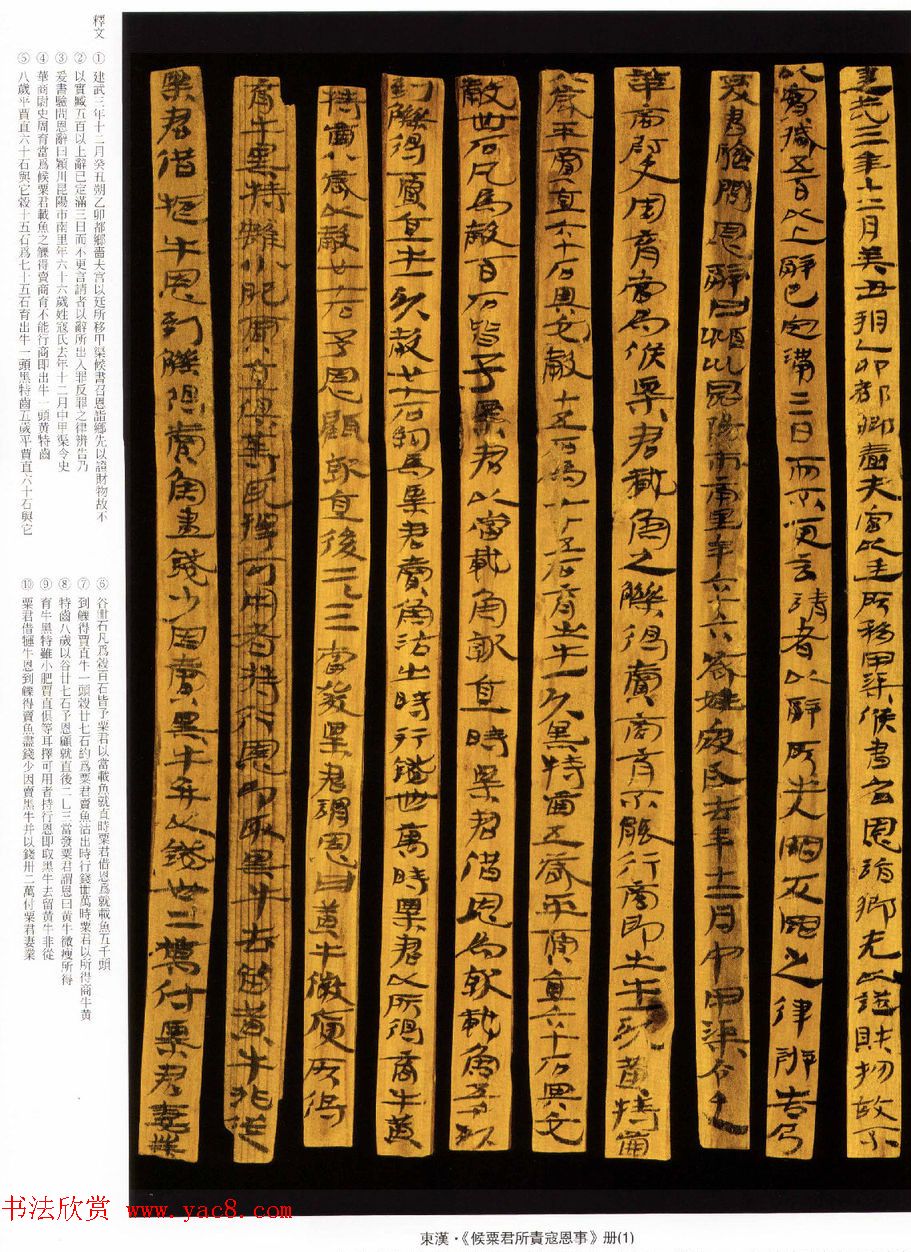 建武三年十二月癸丑朔乙卯都鄉嗇夫宮以廷所移甲渠候書召恩詣鄉先以證財物故不
以實臧五百以上辭已定滿三日而不更言請者以辭所出入罪反罪之律辨告乃
爰書驗問恩辭曰潁川昆陽市南里年六十六歲姓寇氏去年十二月中甲渠令史
華商尉史周育當為候粟君載魚之觻得賣商育不能行商即出牛一頭黃特齒
八歲平賈直六十石與它穀十五石為七十五石育出牛一頭黑特齒五歲平賈直六十石與它
穀卌石凡為穀百石皆予粟君以當載魚就直時粟君借恩為就載魚五千頭
到觻得賈直牛一頭穀廿七石約為粟君賣魚沽出時行錢卌萬時粟君以所得商牛黃
特齒八歲以穀廿七石予恩顧就直後二三當發粟君謂恩曰黃牛微瘦所得
育牛黑特雖小肥賈直俱等耳擇可用者持行恩即取黑牛去留黃牛非從
粟君借牛恩到觻得賣魚盡錢少因賣黑牛并以錢卅二萬付粟君妻業
釋文
① 建武三年十二月癸丑朔乙卯都鄉嗇夫宮以廷所移甲渠候書召恩詣鄉先以證財物故不
② 以實臧五百以上辭已定滿三日而不更言請者以辭所出入罪反罪之律辨告乃
③ 爰書驗問恩辭曰潁川昆陽市南里年六十六歲姓寇氏去年十二月中甲渠令史
④ 華商尉史周育當爲候粟君載魚之觻得賣商育不能行商即出牛一頭黃特齒
⑤ 八歲平賈直六十石與它穀十五石爲七十五石育出牛一頭黑特齒五歲平賈直六十石與它
⑥ 谷卌石凡爲穀百石皆予粟君以當載魚就直時粟君借恩爲就載魚五千頭
⑦ 到觻得賈直牛一頭穀廿七石約爲粟君賣魚沽出時行錢卌萬時粟君以所得商牛黃
⑧ 特齒八歲以谷廿七石予恩顧就直後二乚三當發粟君謂恩曰黃牛微瘦所得
⑨ 育牛黑特雖小肥賈直俱等耳擇可用者持行恩即取黑牛去留黃牛非從
⑩ 粟君借牛恩到觻得賣魚盡錢少因賣黑牛并以錢卅二萬付粟君妻業
東漢·《候粟君所責寇恩事》册(1)
书法欣赏 www.yac8.com